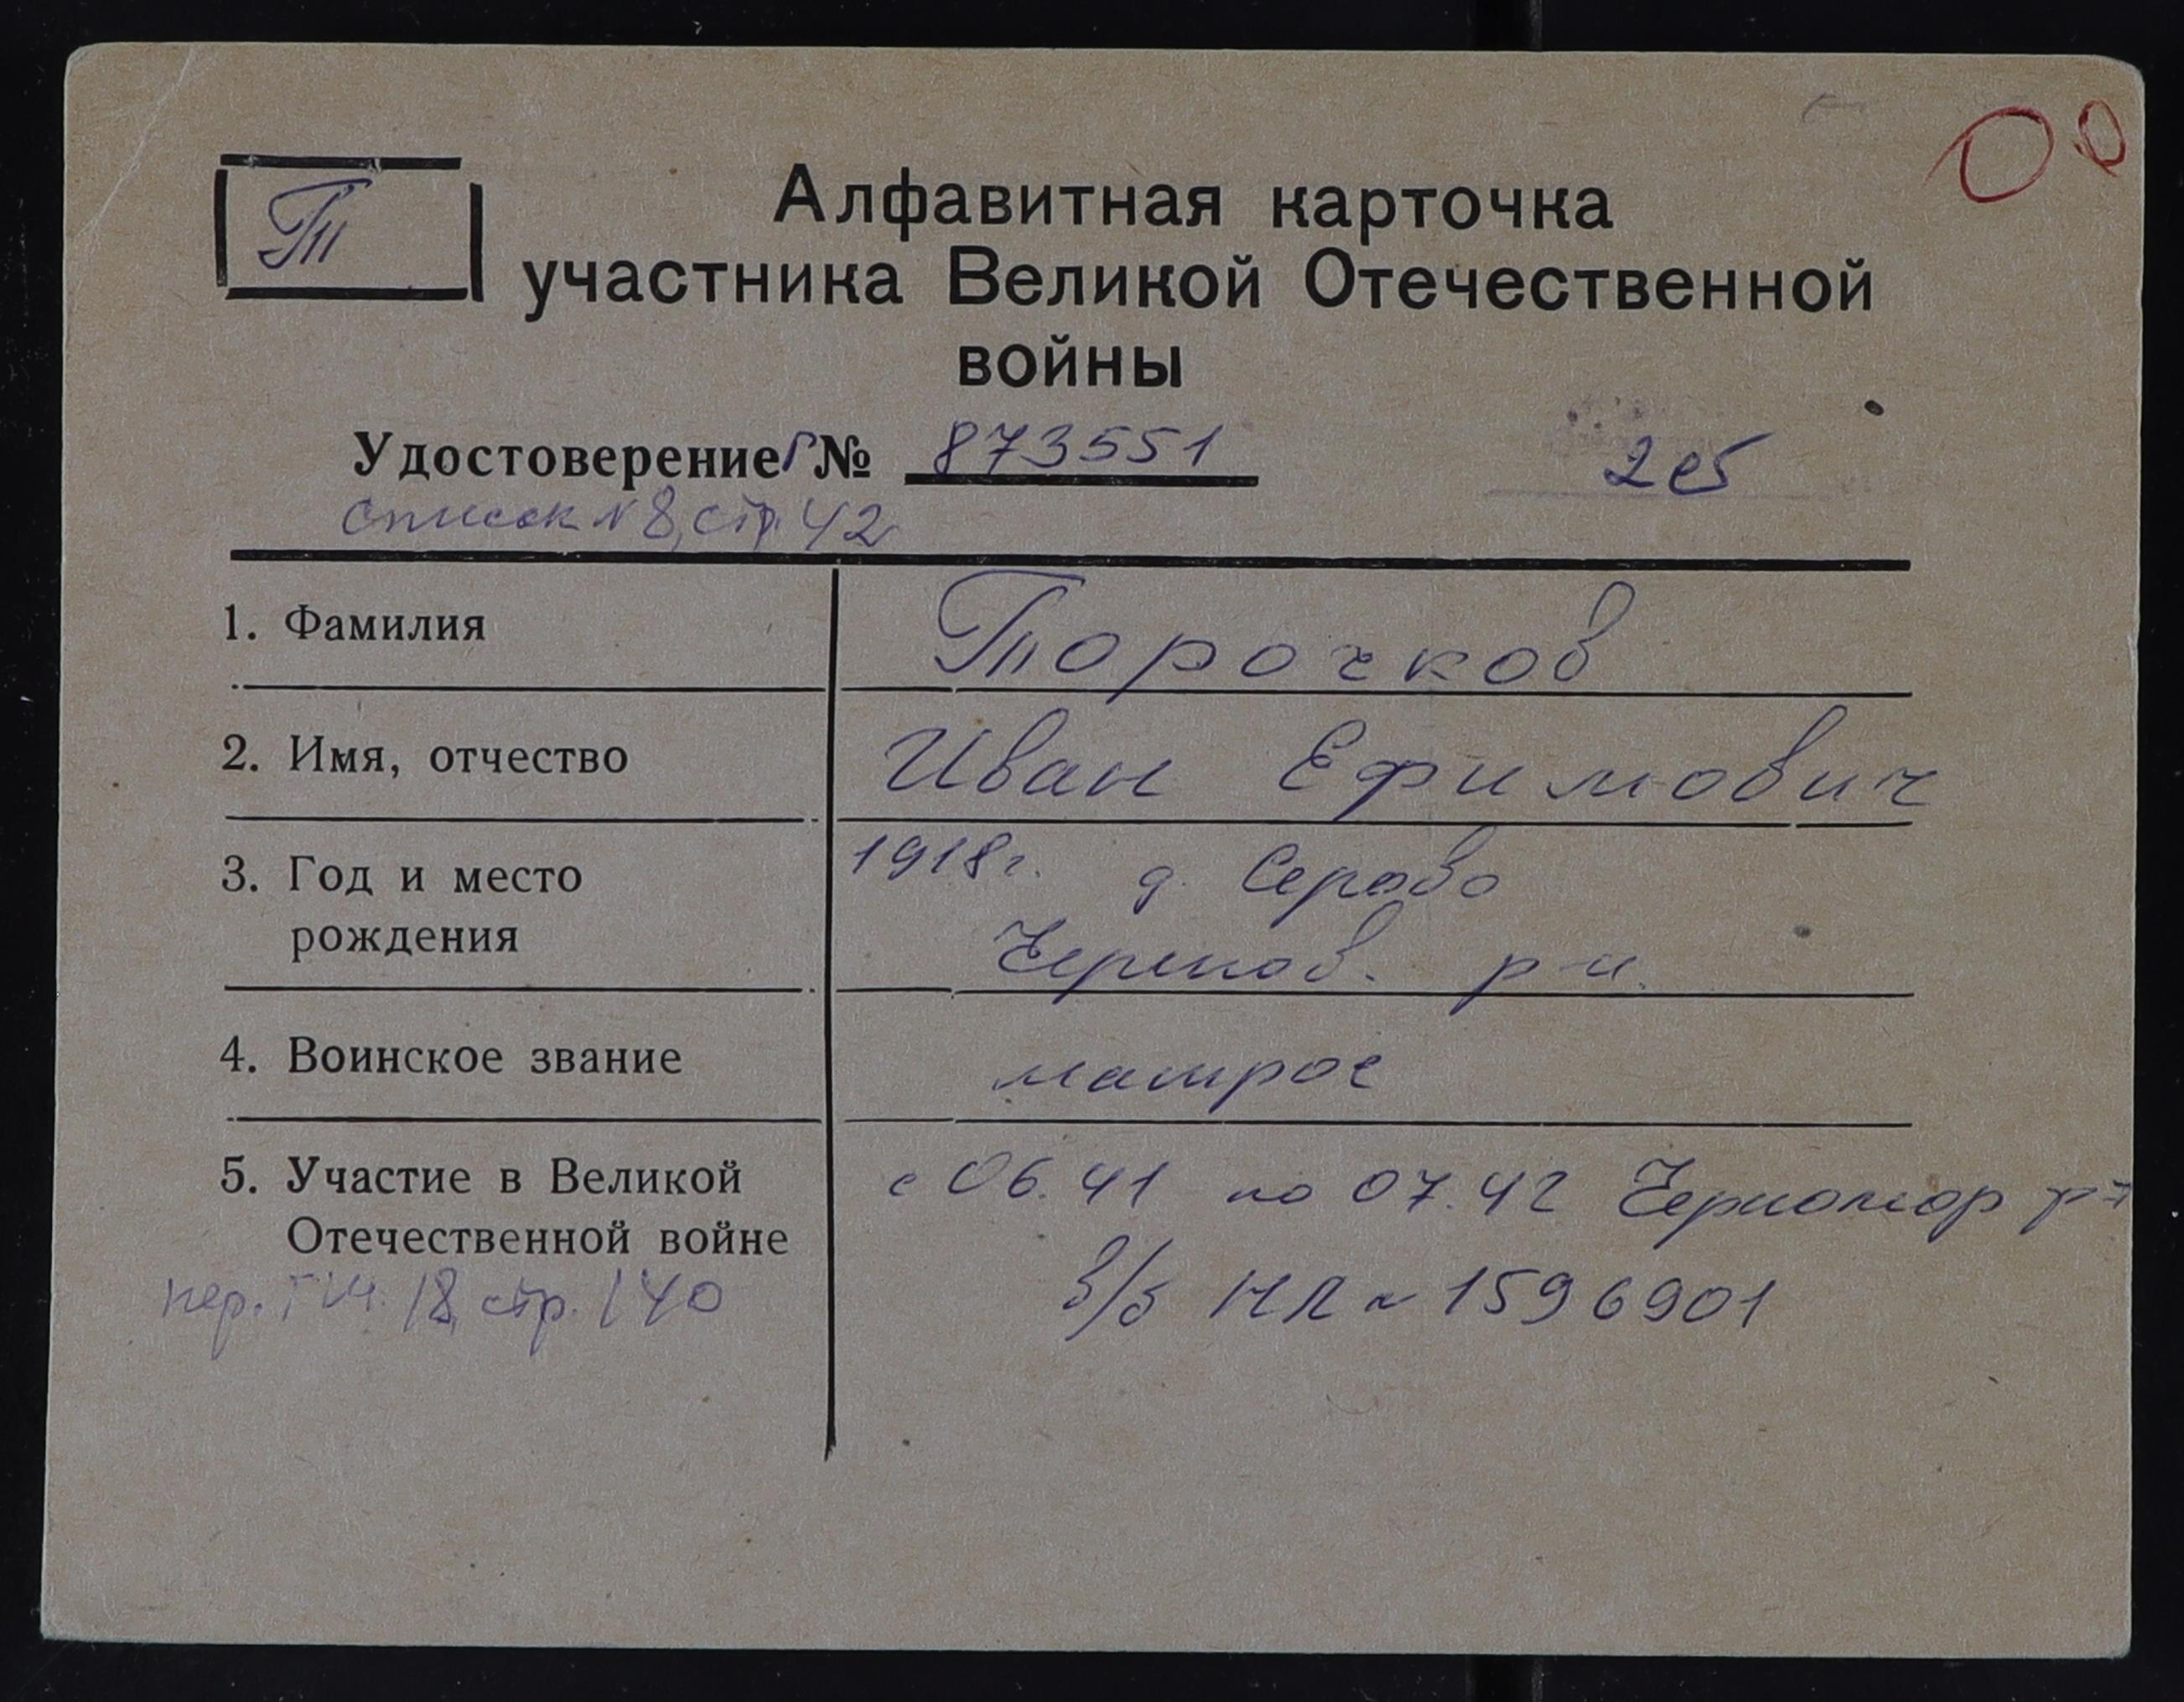 Т
Алфавитная карточка
участника Великой Отечественной
войны
Удостоверение Г № 873551
список № 8, стр. 42
1. Фамилия Торочков
2. Имя, отчество Иван Ефимович
3. Год и место 1918г. д. Серово
рождения р-н.
4. Воинское звание матрос
5. Участие в Великой с 06.41 по 07.42 Черномор
Отечественной войне в/б НЛ № 1596901
стр. 140